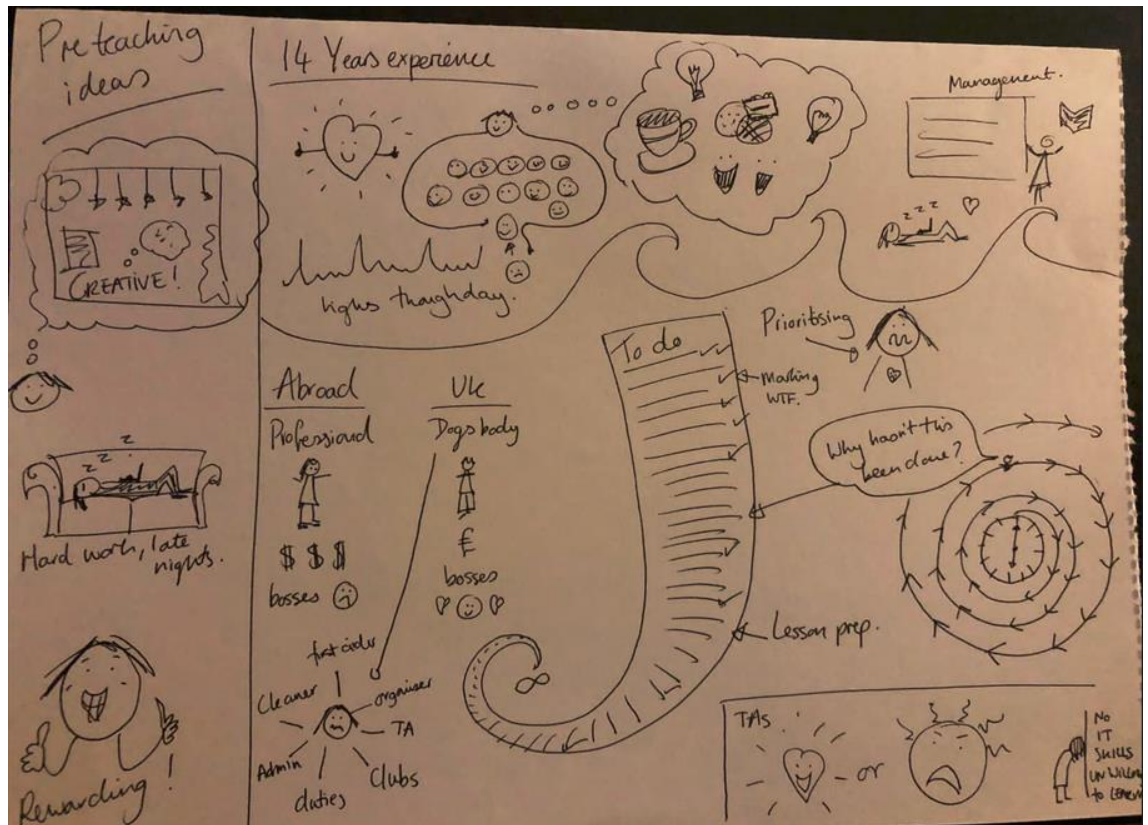 Pre teaching
ideas
CREATIVE!
z z z
Hard work, late
nights.
Rewarding!
14 Years experience
highs though day.
Management.
z z z
Abroad
Professional
$ $ $
bosses
UK
Dogsbody
£
bosses
first aider
Cleaner
organiser
TA
Admin
Clubs
duties
To do
∞
Prioritising
Marking
WTF.
Why hasn't this
been done?
Lesson prep.
TAs
or
No
IT
SKILLS
UNWILLING
to LEARN